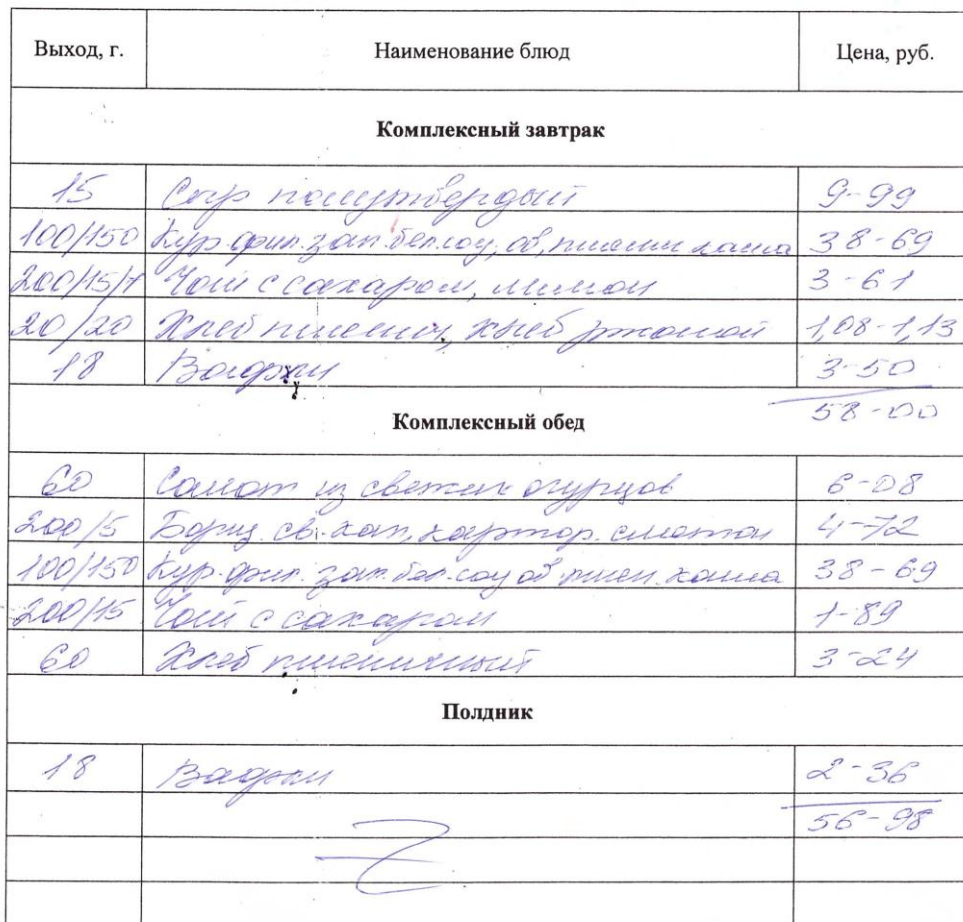 Выход, г. Наименование блюд Цена, руб.
Комплексный завтрак
15 Сыр полутвердый 9-99
100/150 Кур. фил. зап. бел. соу, ов, пшенн каша 38-69
200/15/7 Чай с сахаром, лимон 3-61
20/20 Хлеб пшенич, хлеб ржаной 1,08-1,13
18 Вафли 3-50
58-00
Комплексный обед
60 Салат из свежих огурцов 6-08
200/5 Борщ св. кап, картоф. сметан 4-72
100/150 Кур. фил. зап. бел. соу ов пшен. каша 38-69
200/15 Чай с сахаром 1-89
60 Хлеб пшеничный 3-24
Полдник
18 Вафли 2-36
56-98